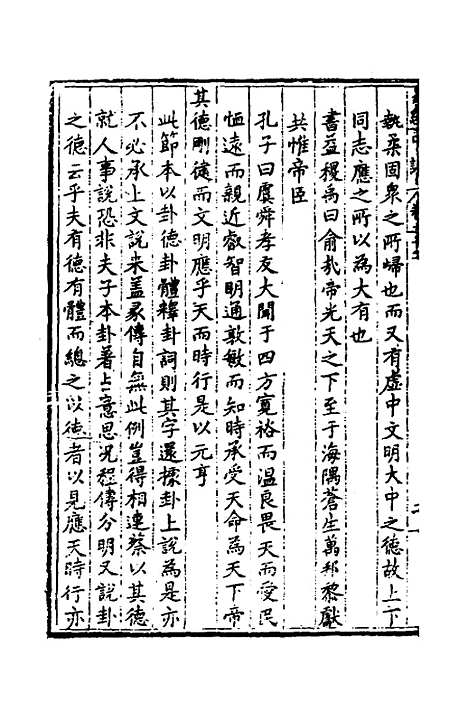 執柔固衆之所歸也而又有虛中文明大中之德故上下
同志應之所以為大有也
書益稷禹曰俞哉帝光天之下至于海隅蒼生萬邦黎獻
共惟帝臣
孔子曰虞舜孝友大聞于四方寬裕而温良畏天而愛民
恤遠而親近叡智明通敦敏而知時承受天命為天下帝
其德剛健而文明應乎天而時行是以元亨
此節本以卦德卦體釋卦詞則其字還據卦上說為是亦
不必承上文說来盖彖傳自無此例豈得相連蔡以其德
就人事說恐非夫子本卦著上意思况程傳分明又說卦
之德云乎夫有德有體而總之以德者以見應天時行亦